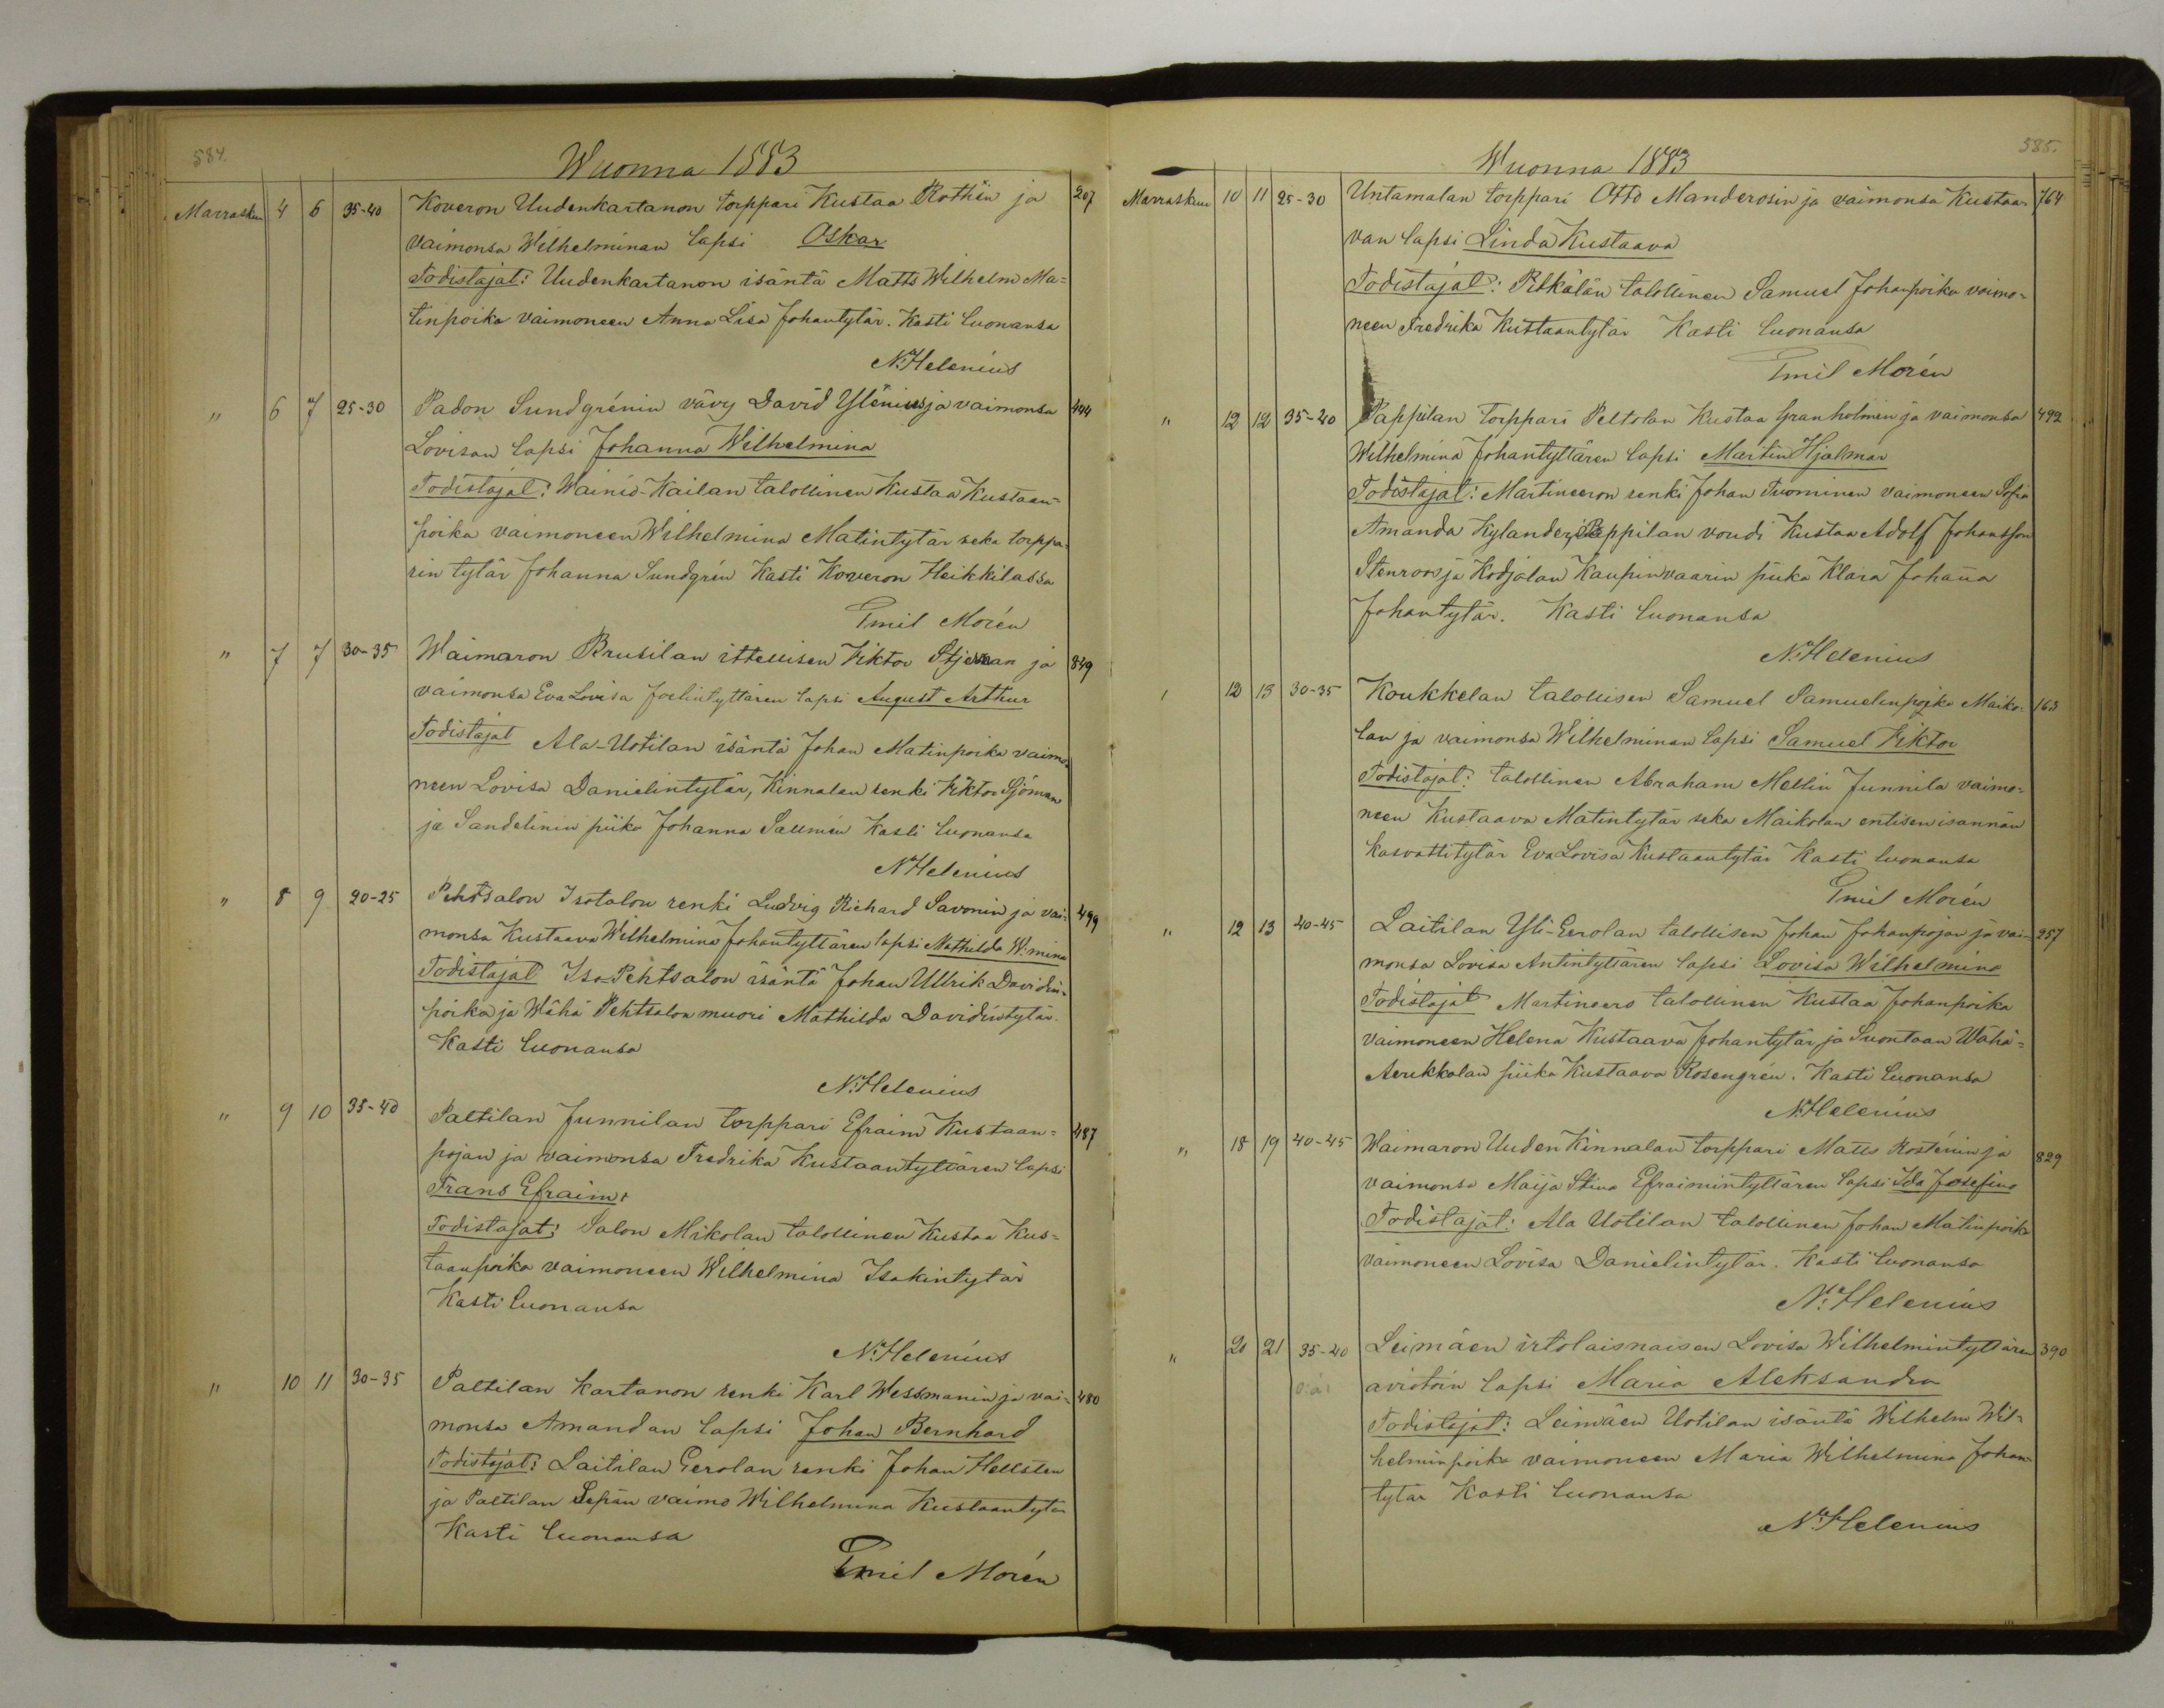 584.
Wuonna 1883
Marraskuu 4 6 35-40 Koveron Uudenkartanon torppari Kustaa Rothin ja 207
vaimonsa Wilhelminan lapsi Oskar
Todistajat: Uudenkartanon isäntä Matts Wilhelm Ma=
tinpoika vaimoneen Anna Lisa Johantytär. Kasti luonansa
N. Helenius
" 6 7 25-30 Padon Sundgrénin vävy David Ylenius ja vaimonsa 444
Lovisan lapsi Johanna Wilhelmina
Todistajat: Wainio-Kailan talollinen Kustaa Kustaan=
poika vaimoneen Wilhelmina Matintytär seka torppa=
rin tytär Johanna Sundgrén Kasti Koveron Heikkilassa
Emil Morén
" 7 7 30-35 Waimaron Prusilan ittellisen Viktor Stjernan ja 849
vaimonsa Eva Lovisa Joelintyttären lapsi August Arthur
Todistajat Ala-Uotilan isäntä Johan Matinpoika vaimo
neen Lovisa Danielintytär, Kinnalan renki Viktor Sjöman
ja Sandelinin piika Johanna Sallmén Kasti luonansa
N. Helenius
" 8 9 20-25 Pehtsalon Isotalon renki Ludvig Richard Savonin ja vai= 499
monsa Kustaava Wilhelmina Johantyttären lapsi Mathilda W:mina
Todistajat Iso-Pehtsalon isäntä Johan Ullrik Davidin=
poika ja Wähä Pehtsalon muori Mathilda Davidintytär.
Kasti luonansa
N. Helenius
" 9 10 35-40 Paltilan Junnilan torppari Efraim Kustaan= 487
pojan ja vaimonsa Fredrika Kustaantyttären lapsi
Frans Efraim.
Todistajat: Salon Mikolan talollinen Kustaa Kus=
taanpoika vaimoneen Wilhelmina Isakintytär
Kasti luonansa
N. Helenius
" 10 11 30-35 Paltilan kartanon renki Karl Wessmanin ja vai= 480
monsa Amandan lapsi Johan Bernhard
Todistajat: Laitilan Eerolan renki Johan Hellsten
ja Paltilan Sepän vaimo Wilhelmina Kustaantytär
Kasti luonansa
Emil Morén
585.
Wuonna 1883
Marraskuu 10 11 25-30 Untamalan torppari Otto Manderosin ja vaimonsa Kustaa= 764
van lapsi Linda Kustaava
Todistajat: Pitkälän talollinen Samuel Johanpoika vaimo=
neen Fredrika Kustaantytär Kasti luonansa
Emil Morén
" 12 12 35-40 Pappilan torppari Peltolan Kustaa Granholmin ja vaimonsa 492
Wilhelmina Johantyttären lapsi Martin Hjalmar
Todistajat: Martineeron renki Johan Tuominen vaimoneen Sofia
Amanda Kylander, Pappilan voudi Kustaa Adolf Johansson
Stenroos ja Kodjalan Kaupinvaarin piika Klara Johanna
Johantytär. Kasti luonansa
N. Helenius
" 12 13 30-35 Koukkelan talollisen Samuel Samuelinpojka Maiko= 163
lan ja vaimonsa Wilhelminan lapsi Samuel Viktor
Todistajat: talollinen Abraham Mellin Junnila vaimo=
neen Kustaava Matintytär seka Maikolan entisen isannän
kasvattitytär Eva Lovisa Kustaantytär Kasti luonansa
Emil Morén
" 12 13 40-45 Laitilan Yli-Eerolan talollisen Johan Johanpojan ja vai= 257
monsa Lovisa Antintyttären lapsi Lovisa Wilhelmina
Todistajat Martineero talollinen Kustaa Johanpoika
vaimoneen Helena Kustaava Johantytär ja Suontaan Wähä=
Aerikkalan piika Kustaava Rosengrén. Kasti luonansa
N. Helenius
" 18 19 40-45 Waimaron Uuden Kinnalan torppari Matts Rosténin ja 829
vaimonsa Maija Stina Efraimintyttären lapsi Ida Josefina
Todistajat: Ala Uotilan talollinen Johan Matinpoika
vaimoneen Lovisa Danielintytär. Kasti luonansa
N. Helenius
" 20 21 35-40 Leimäen irtolaisnaisen Lovisa Wilhelmintyttären 390
o:ä: aviotoin lapsi Maria Aleksandra
Todistajat: Leimäen Uotilan isäntä Wilhelm Wil=
helminpoika vaimoneen Maria Wilhelmina Johan=
tytär Kasti luonansa
N. Helenius